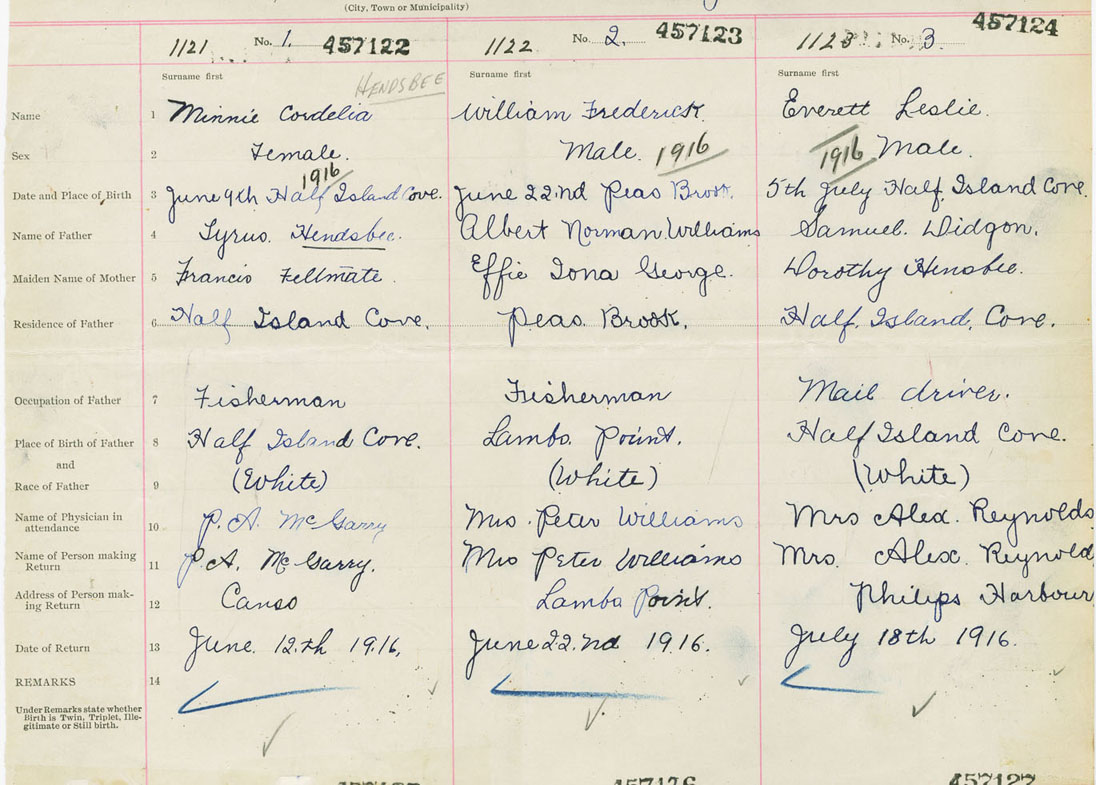 (City, Town or Municipality)
1121 No. 1. 457122 1122 No. 2. 457123 1123 No. 3 457124
Surname first Surname first Surname first
HENDSBEE
Name 1 Minnie Cordelia William Frederick. Everett Leslie.
Sex 2 Female. Male. 1916 1916 Male.
1916
Date and Place of Birth 3 June 9th Half Island Cove. June 22nd Peas Brook. 5th July Half Island Cove.
Name of Father 4 Syrus. Hendsbee. Albert Norman. Williams Samuel. Didgon.
Maiden Name of Mother 5 Francis Fellmate. Effie Iona George. Dorothy Hensbee.
Residence of Father 6 Half Island Cove. Peas. Brook. Half. Island. Cove.
Occupation of Father 7 Fisherman Fisherman Mail driver.
Place of Birth of Father 8 Half Island Cove. Lambs. Point. Half Island Cove.
and
Race of Father 9 (White) (White) (White)
Name of Physician in
attendance 10 P. A. McGarry Mrs. Peter Williams Mrs Alex. Reynolds
Name of Person making
Return 11 P.A. McGarry. Mrs Peter Williams Mrs. Alex. Reynold
Address of Person mak-
ing Return 12 Canso Lambs Point. Philips Harbour
Date of Return 13 June. 12.th 1916. June 22.nd 1916. July 18th 1916.
REMARKS 14
Under Remarks state whether
Birth is Twin, Triplet, Ille-
gitimate or Still birth.